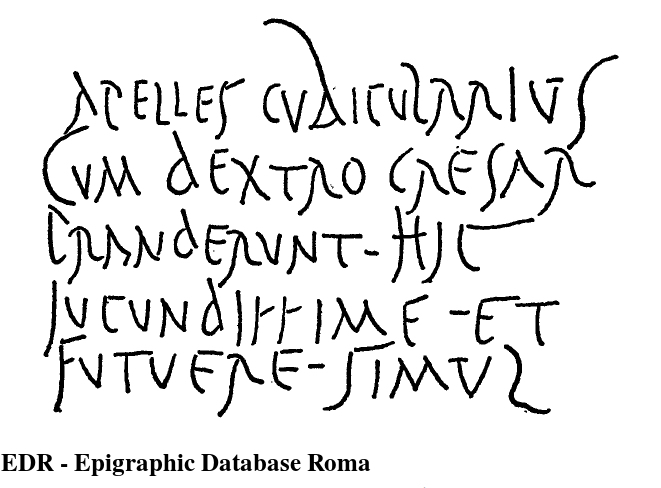 APELLES CVBICVLARIVS
CVM DEXTRO CAESAR
PRANDERVNT - HIC
IVCVNDISSIME - ET
FVTVERE - SIMVL
EDR - Epigraphic Database Roma